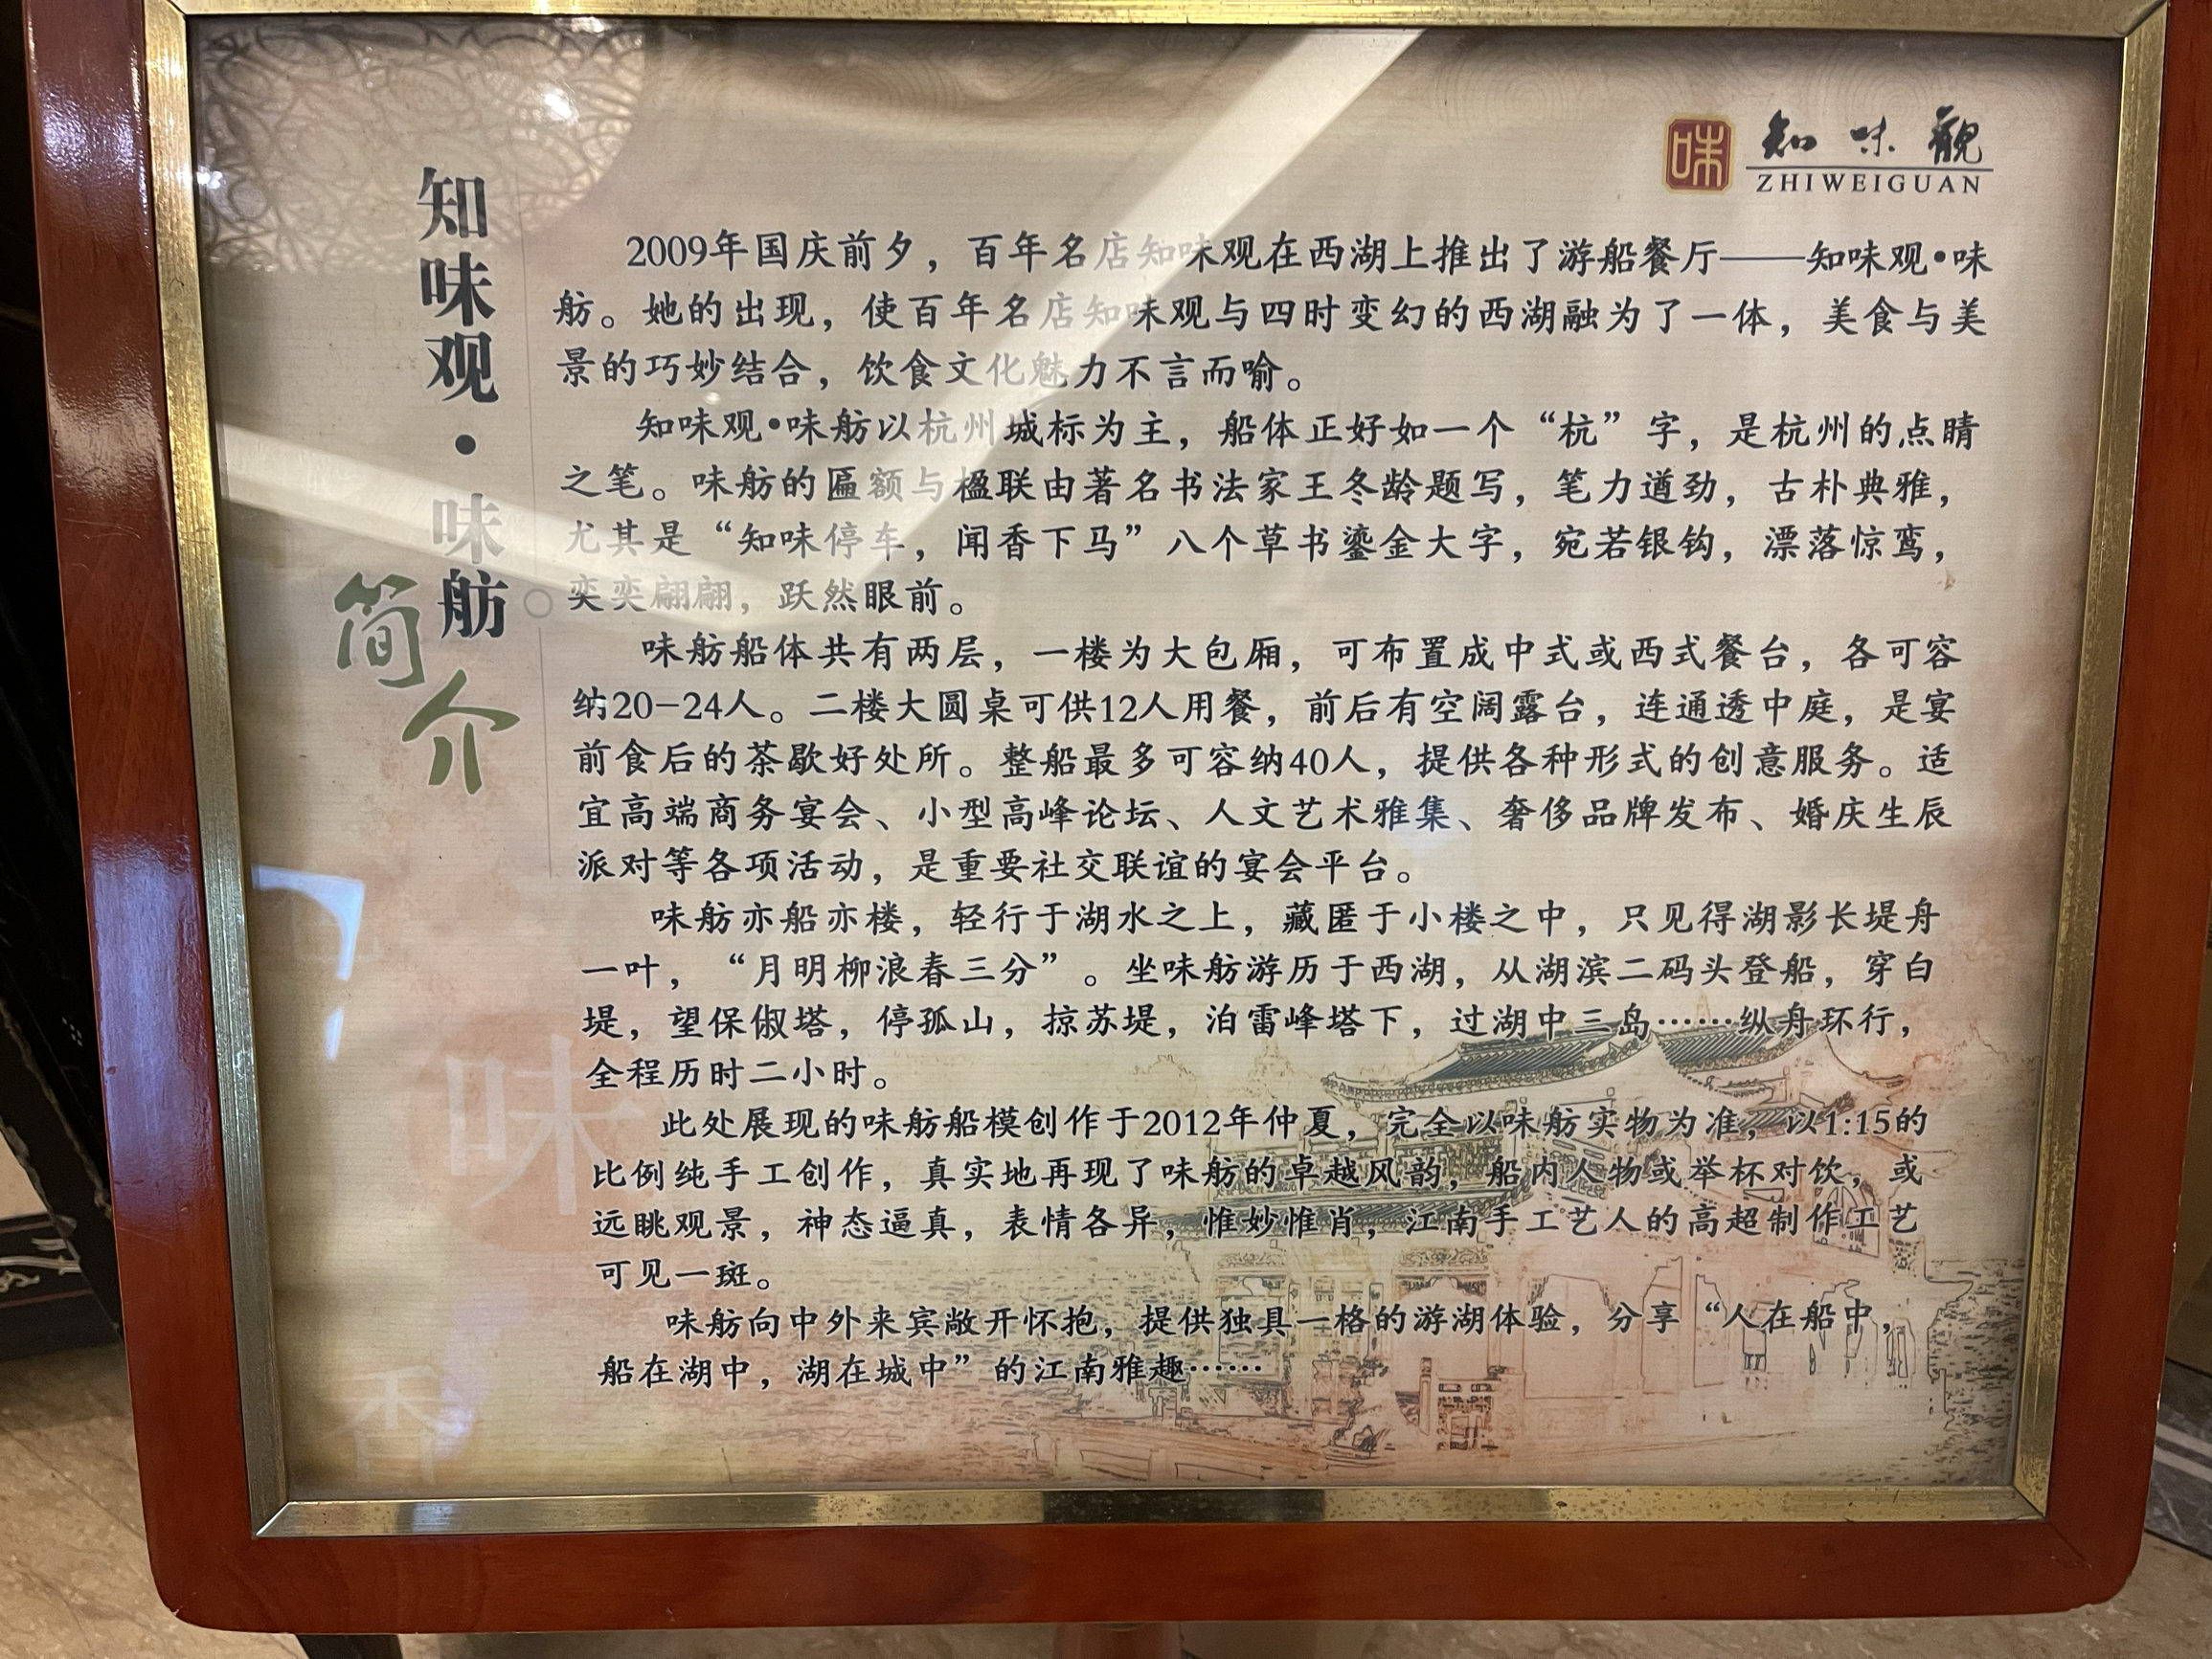 味
知味觀
ZHIWEIGUAN
知味观·味舫
简介
2009年国庆前夕，百年名店知味观在西湖上推出了游船餐厅——知味观•味
舫。她的出现，使百年名店知味观与四时变幻的西湖融为了一体，美食与美
景的巧妙结合，饮食文化魅力不言而喻。
知味观•味舫以杭州城标为主，船体正好如一个“杭”字，是杭州的点睛
之笔。味舫的匾额与楹联由著名书法家王冬龄题写，笔力遒劲，古朴典雅，
尤其是“知味停车，闻香下马”八个草书鎏金大字，宛若银钩，漂落惊鸾，
奕奕翩翩，跃然眼前。
味舫船体共有两层，一楼为大包厢，可布置成中式或西式餐台，各可容
纳20-24人。二楼大圆桌可供12人用餐，前后有空阔露台，连通透中庭，是宴
前食后的茶歇好处所。整船最多可容纳40人，提供各种形式的创意服务。适
宜高端商务宴会、小型高峰论坛、人文艺术雅集、奢侈品牌发布、婚庆生辰
派对等各项活动，是重要社交联谊的宴会平台。
味舫亦船亦楼，轻行于湖水之上，藏匿于小楼之中，只见得湖影长堤舟
一叶，“月明柳浪春三分”。坐味舫游历于西湖，从湖滨二码头登船，穿白
堤，望保俶塔，停孤山，掠苏堤，泊雷峰塔下，过湖中三岛……纵舟环行，
全程历时二小时。
此处展现的味舫船模创作于2012年仲夏，完全以味舫实物为准，以1:15的
比例纯手工创作，真实地再现了味舫的卓越风韵，船内人物或举杯对饮，或
远眺观景，神态逼真，表情各异，惟妙惟肖，江南手工艺人的高超制作工艺
可见一斑。
味舫向中外来宾敞开怀抱，提供独具一格的游湖体验，分享“人在船中，
船在湖中，湖在城中”的江南雅趣……
味
香